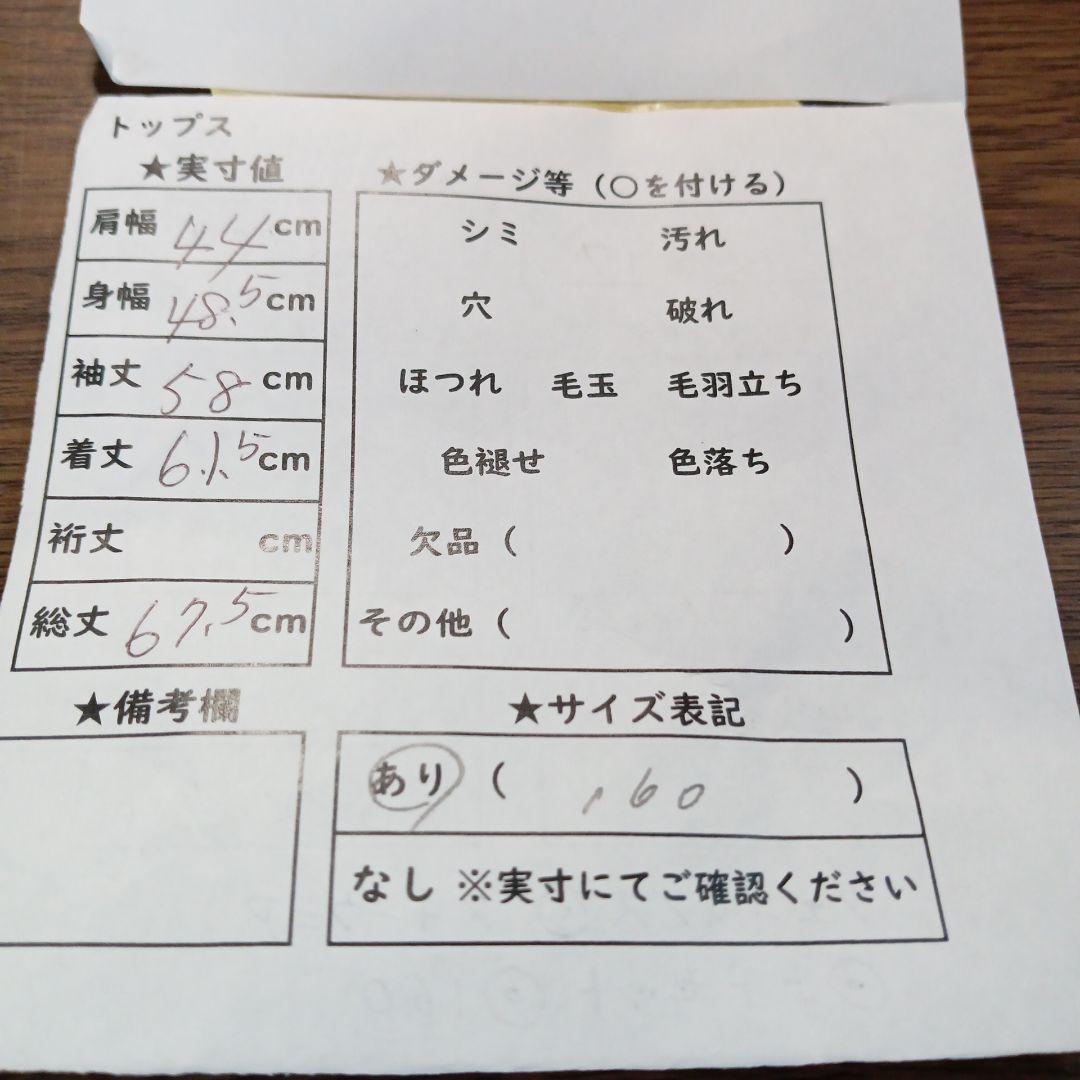 トップス
★実寸値
肩幅 44 cm
身幅 48.5 cm
袖丈 58 cm
着丈 61.5 cm
裄丈 cm
総丈 67.5 cm
★ダメージ等（○を付ける）
シミ 汚れ
穴 破れ
ほつれ 毛玉 毛羽立ち
色褪せ 色落ち
欠品（ ）
その他（ ）
★備考欄
★サイズ表記
あり（ 160 ）
なし ※実寸にてご確認ください